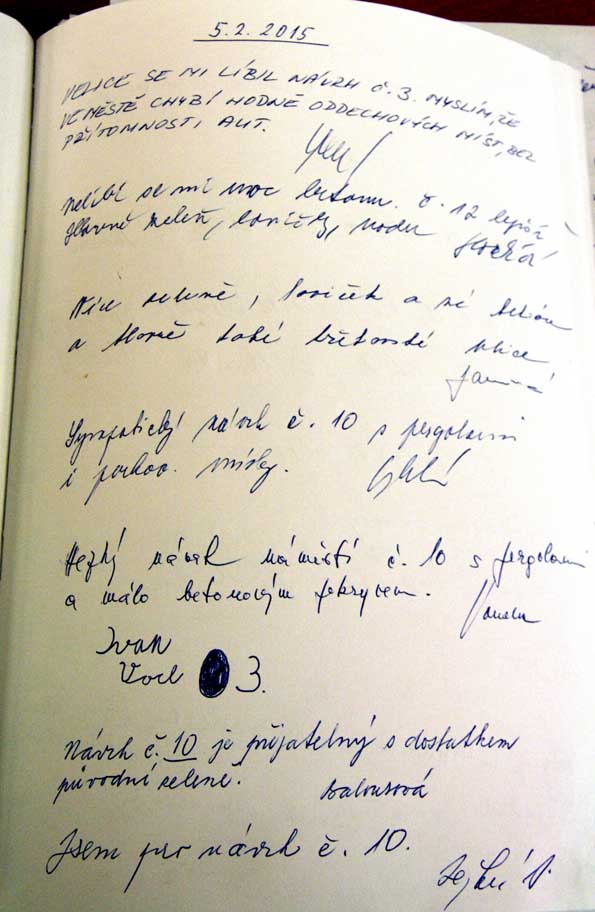 5.2.2015
VELICE SE MI LÍBIL NÁVRH č.3. MYSLÍM, ŽE
VE MĚSTĚ CHYBÍ HODNĚ ODDECHOVÝCH MÍST, BEZ
PŘÍTOMNOSTI AUT.
Nelíbí se mi moc betonu. č. 12 lepší
Hlavně zeleň, lavičky, vodu
Více zeleně, laviček a né beton
a hlavně také ulice
Sympatický návrh č. 10 s pergolami
i parkov. místy.
Hezký návrh náměstí č. 10 s pergolami
a málo betonovým pokryvem.
Ivan
Vocl 3.
Návrh č. 10 je přijatelný s dostatkem
původní zeleně.
Jsem pro návrh č. 10.